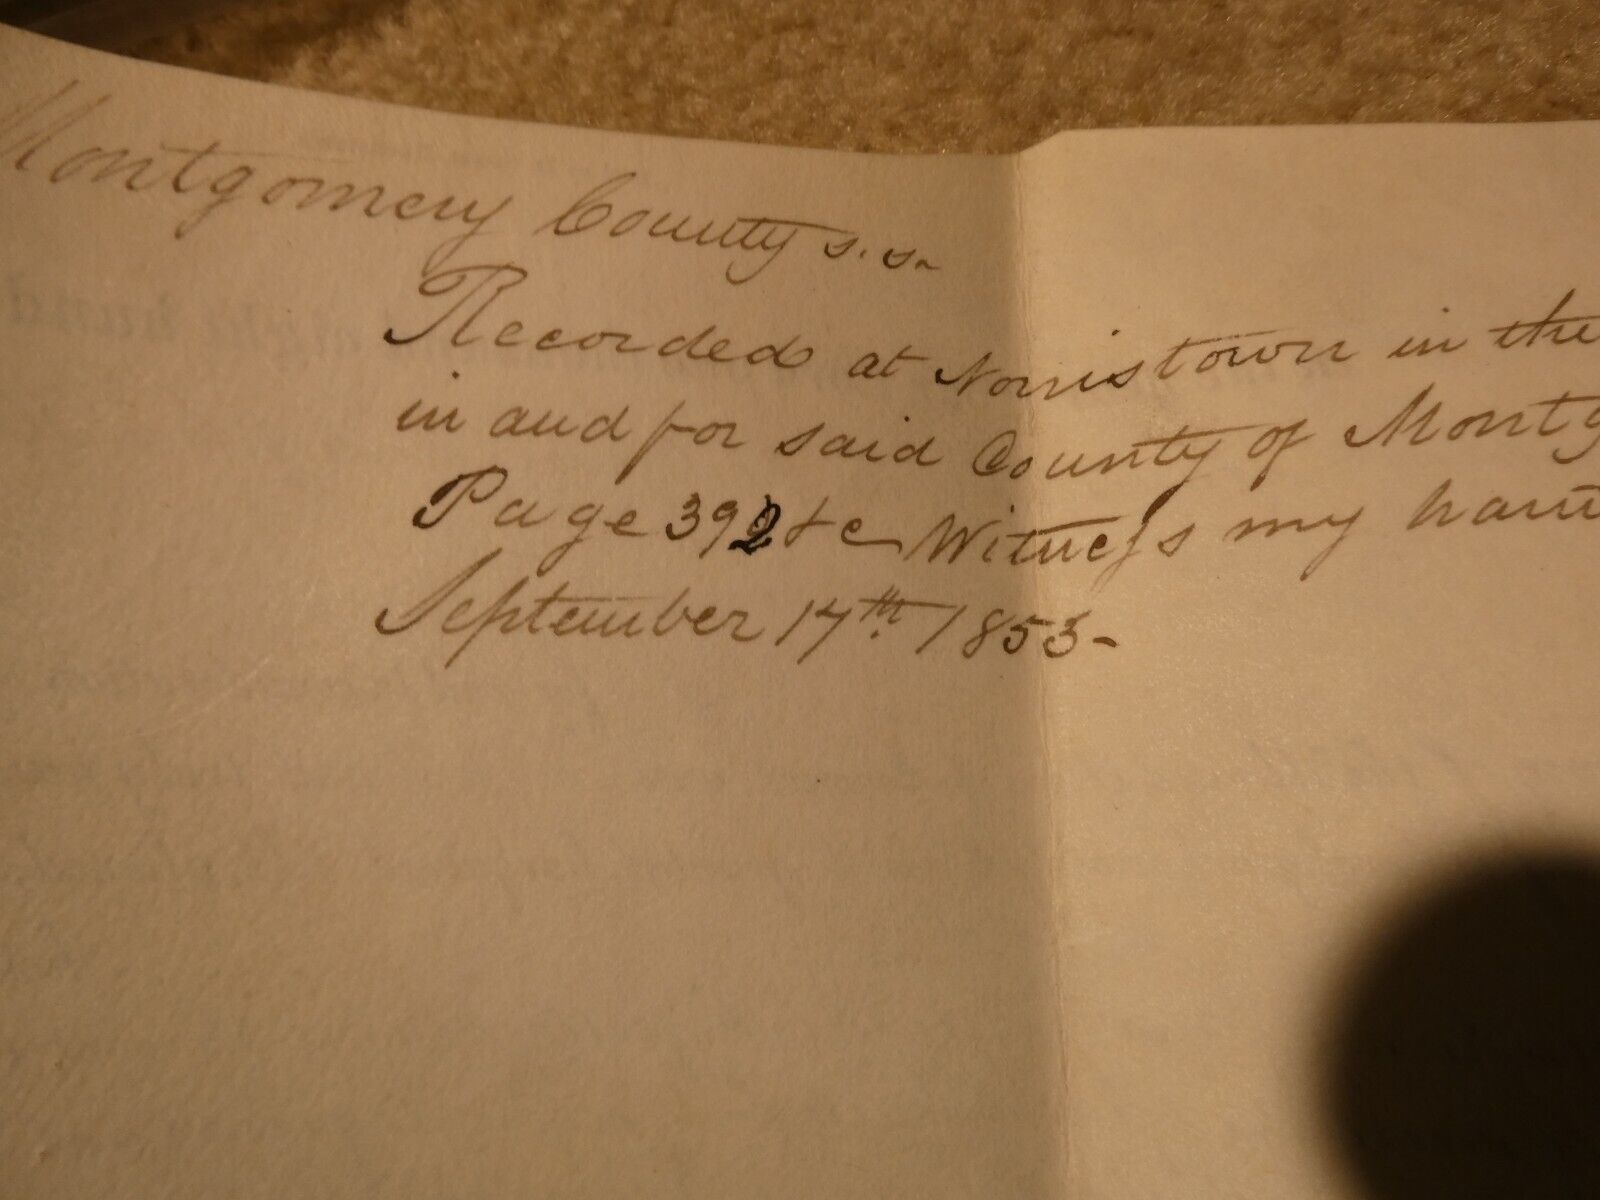 Montgomery County s.s.
Recorded at Norristown in the
in and for said County of Montg
Page 392 &c Witness my han
September 17th 1853-